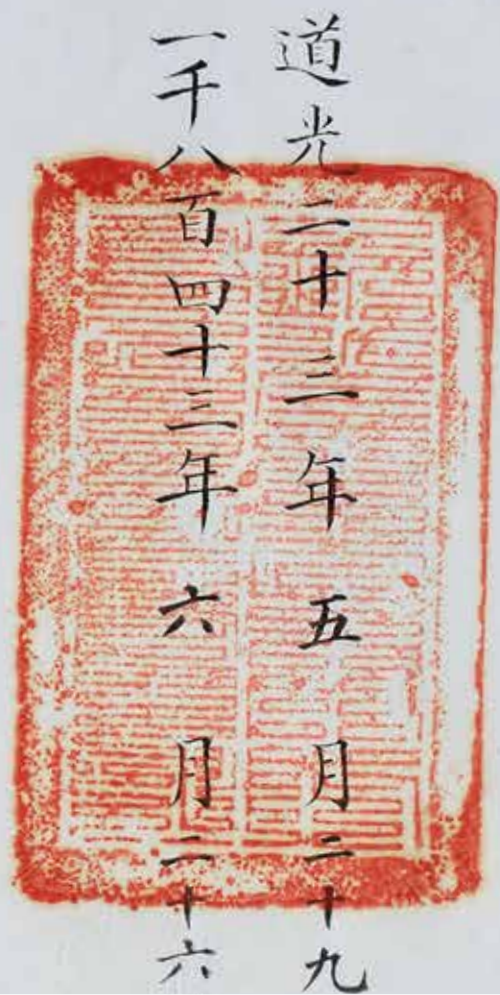 道光二十三年五月二十九
一千八百四十三年六月二十六